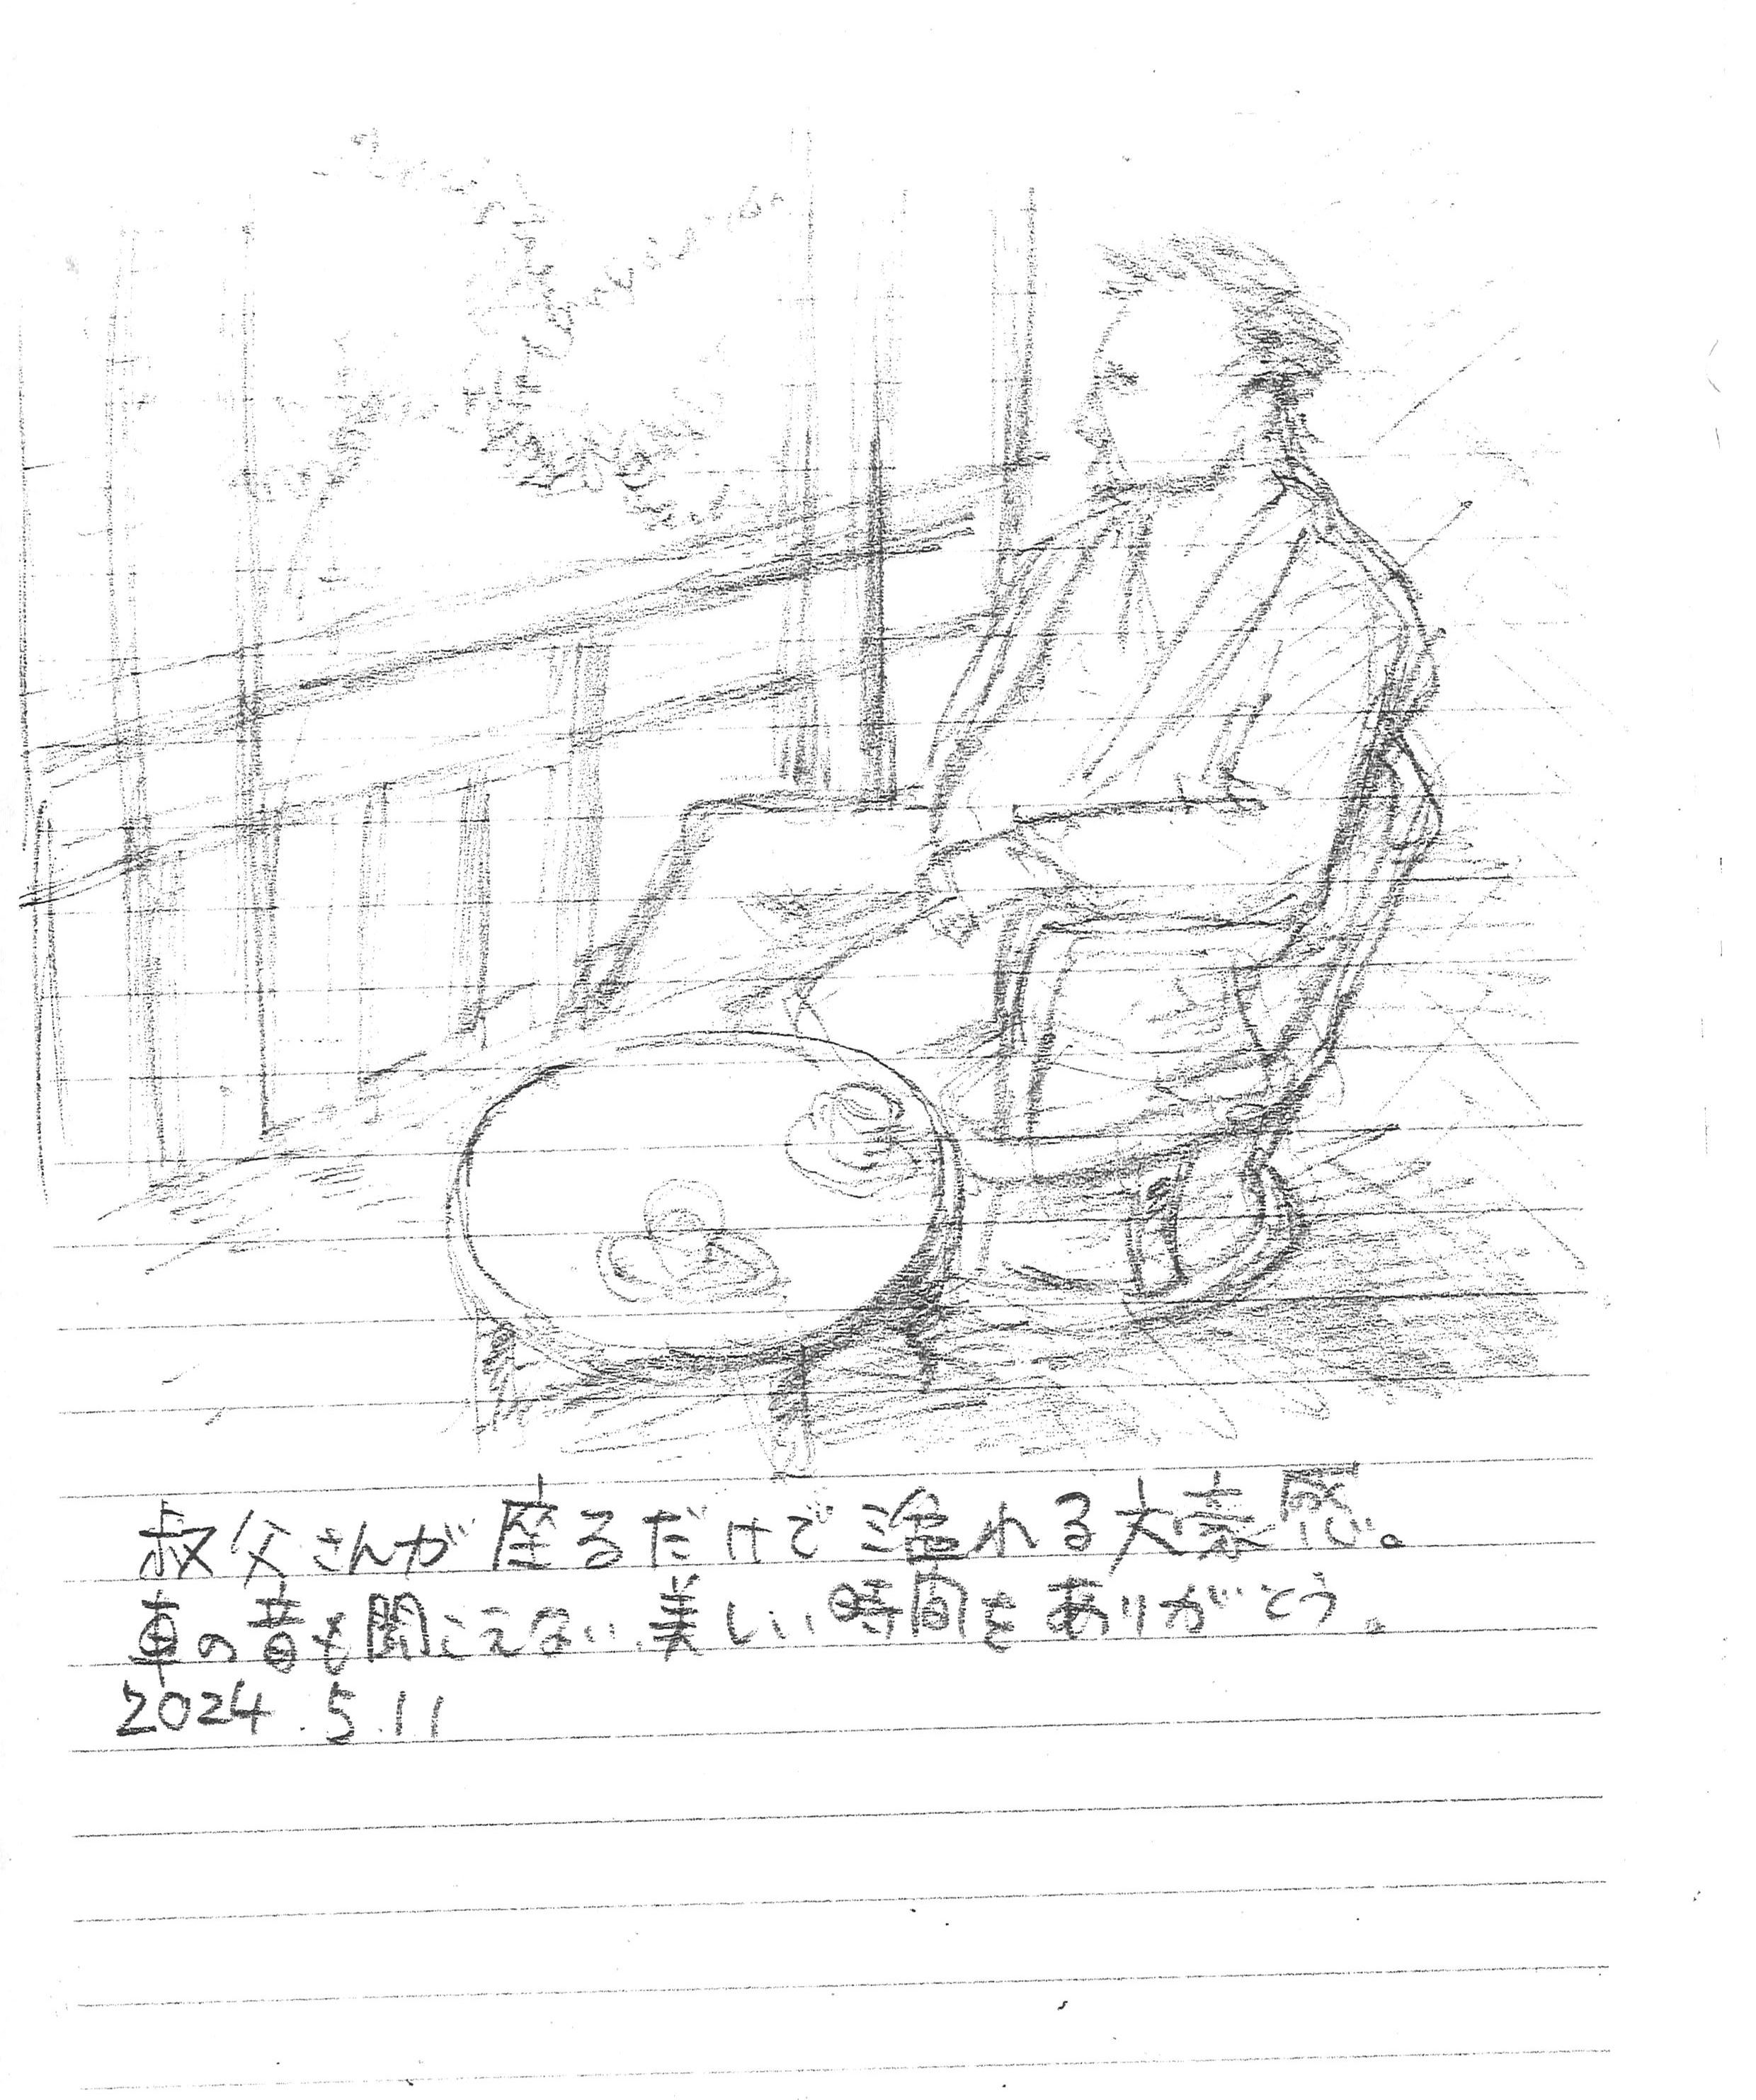 叔父さんが座るだけで溢れる大豪感。
車の音も聞こえない、美しい時間をありがとう。
2024.5.11